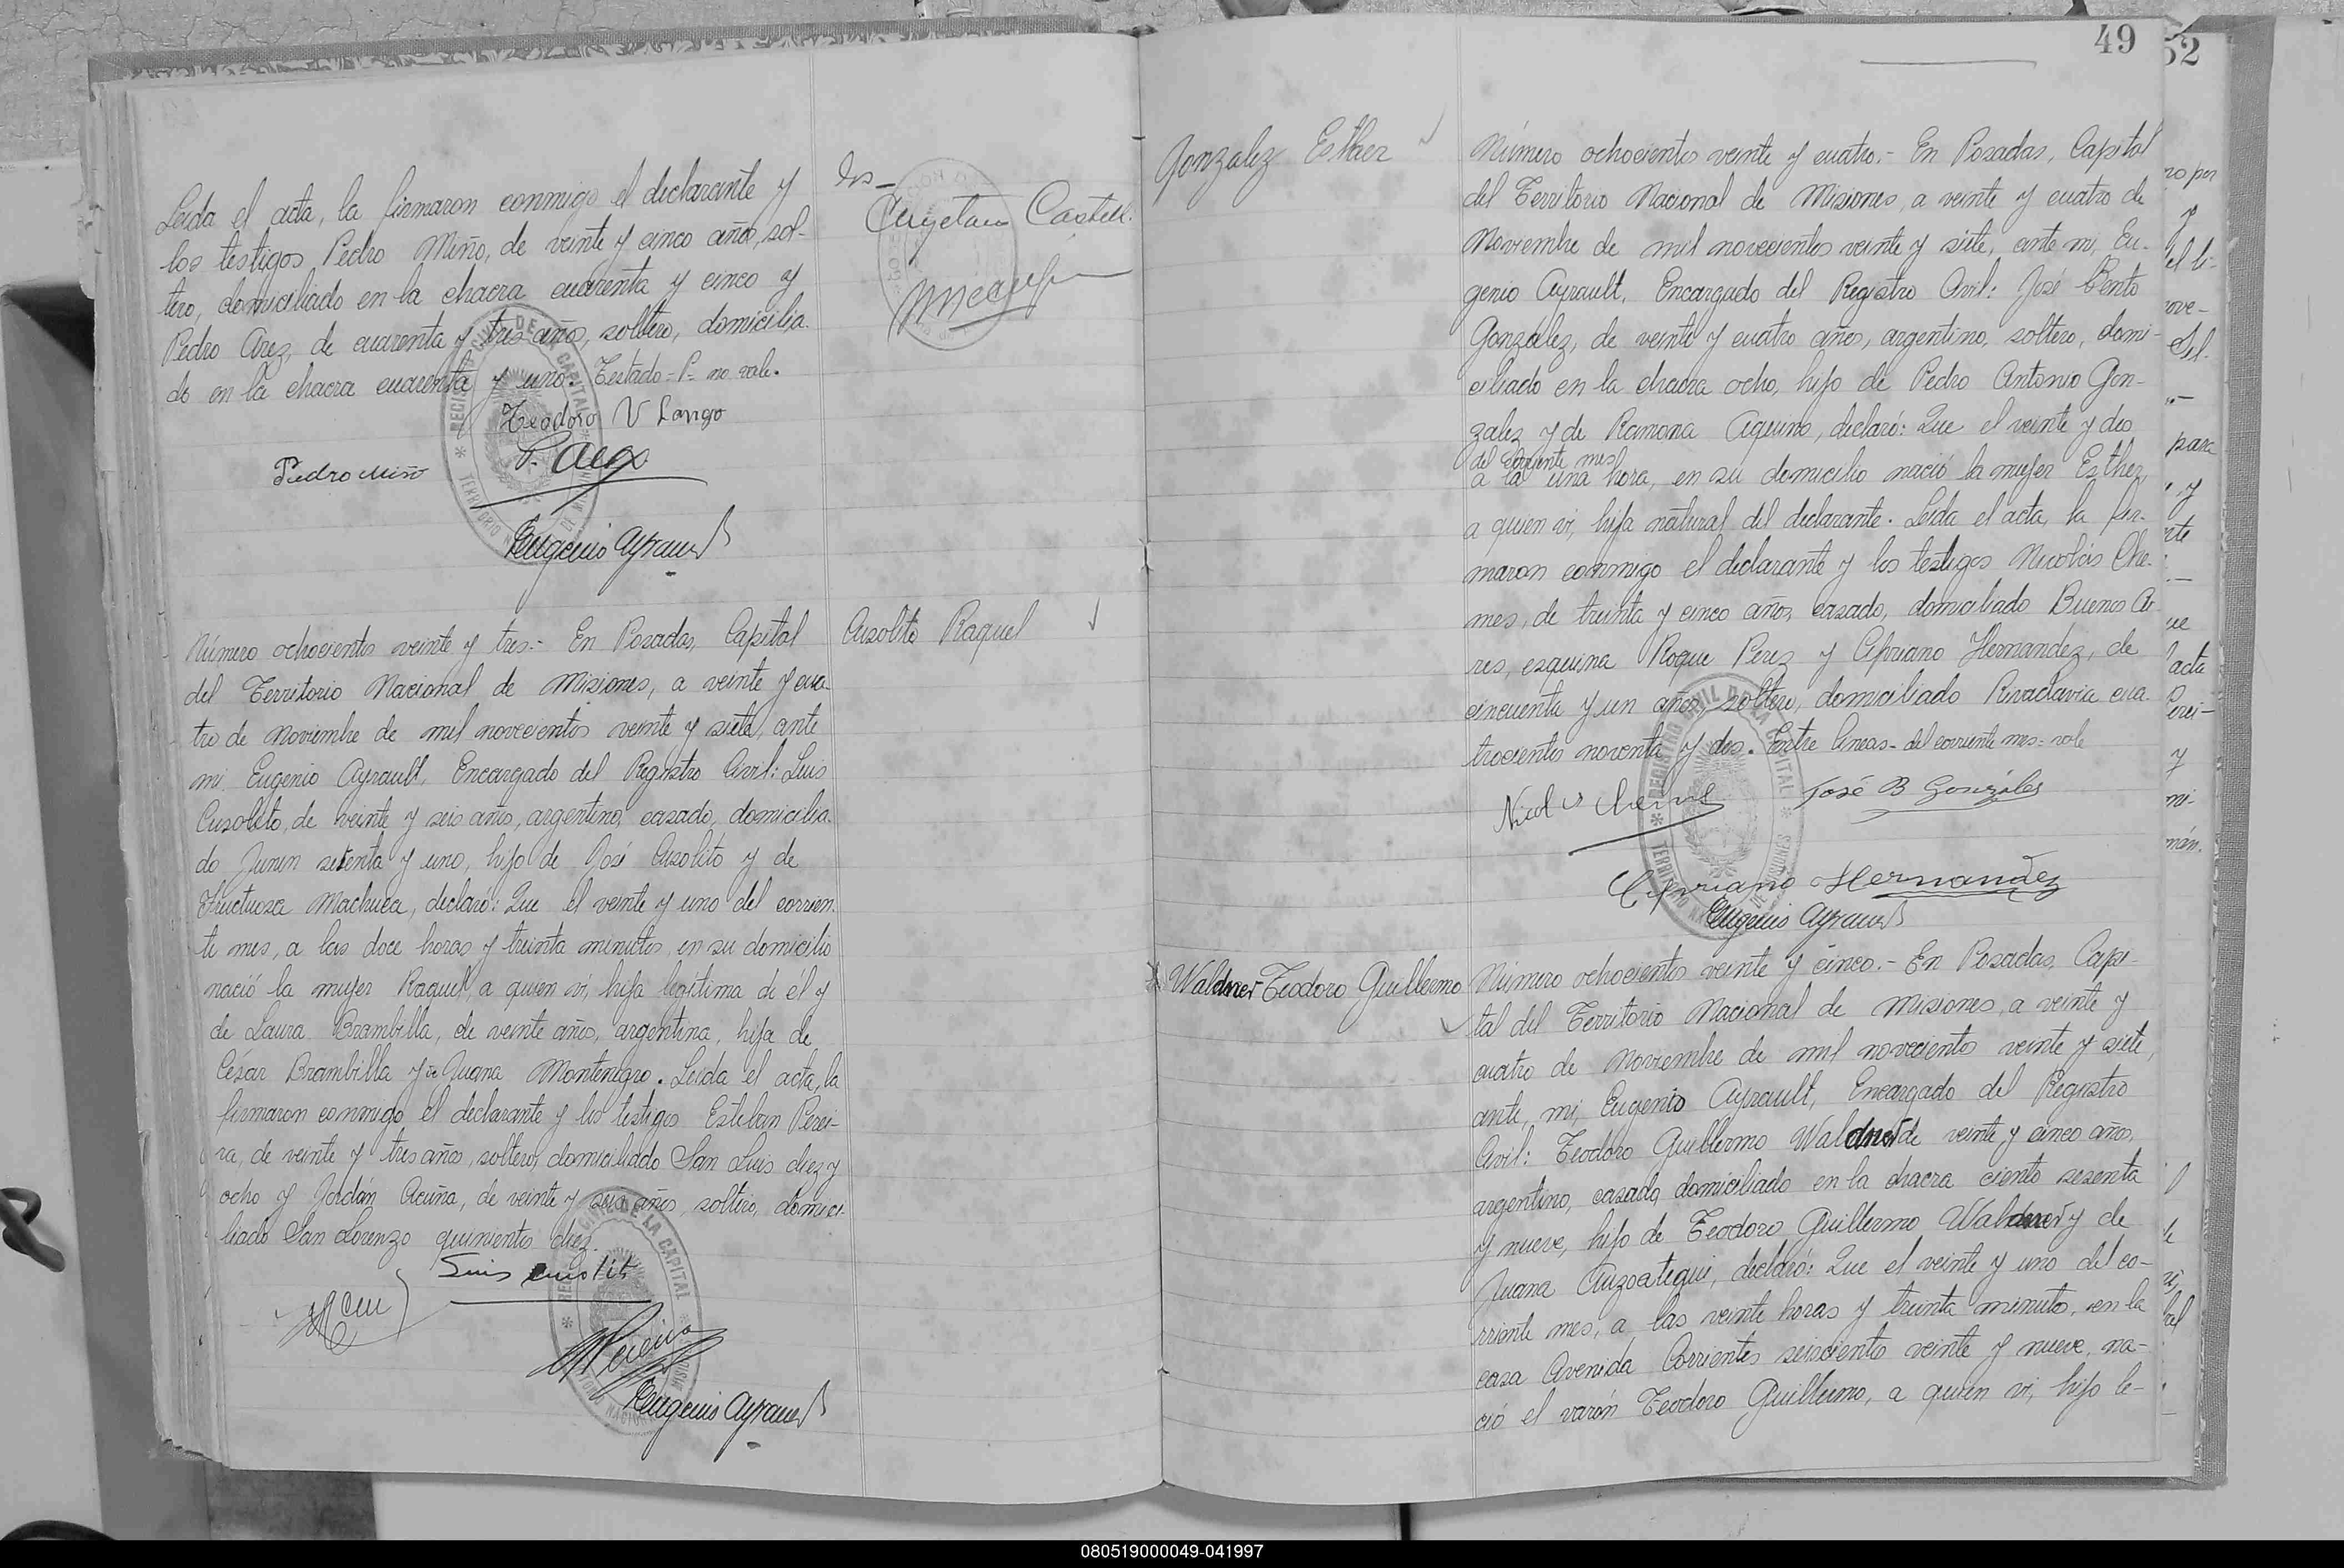 Leida el acta, la firmaron conmigo el declarante y
los testigos Pedro Miño, de veinte y cinco años, sol-
tero, domiciliado en la chacra cuarenta y cinco y
Pedro Arez, de cuarenta y tres años, soltero, domicilia-
do en la chacra cuarenta y uno. Testado - P - no vale.
Teodoro V Longo
Pedro Miño
Eugenio Ayrault
Cayetano
REGISTRO CIVIL DE LA CAPITAL
TERRITORIO NACIONAL DE MISIONES
Cusolito Raquel
Número ochocientos veinte y tres.- En Posadas, Capital
del Territorio Nacional de Misiones, a veinte y cua-
tro de Noviembre de mil novecientos veinte y siete, ante
mi Eugenio Ayrault, Encargado del Registro Civil: Luis
Cusolito, de veinte y seis años, argentino, casado, domicilia-
do Junin setenta y uno, hijo de José Cusolito y de
Fructuosa Machuca, declaró: Que el veinte y uno del corrien-
te mes, a las doce horas y treinta minutos, en su domicilio
nació la mujer Raquel, a quien vi, hija legítima de él y
de Laura Brambilla, de veinte años, argentina, hija de
César Brambilla y de Juana Montenegro. Leida el acta, la
firmaron conmigo el declarante y los testigos Esteban Perei-
ra, de veinte y tres años, soltero, domiciliado San Luis diez y
ocho y Jordán Acuña, de veinte y seis años, soltero, domici-
liado San Lorenzo quinientos diez.
Luis Cusolito
EPereira
Eugenio Ayrault
REGISTRO CIVIL DE LA CAPITAL
49
52
Gonzalez Esther
Número ochocientos veinte y cuatro.- En Posadas, Capital
del Territorio Nacional de Misiones, a veinte y cuatro de
Noviembre de mil novecientos veinte y siete, ante mi, Eu-
genio Ayrault, Encargado del Registro Civil: José Bento
Gonzalez, de veinte y cuatro años, argentino, soltero, domi-
ciliado en la chacra ocho, hijo de Pedro Antonio Gon-
zalez y de Ramona Aquino, declaró: Que el veinte y dos
del corriente mes
a la una hora, en su domicilio nació la mujer Esther,
a quien vi, hija natural del declarante. Leida el acta, la fir-
maron conmigo el declarante y los testigos Nicolás Che-
mes, de treinta y cinco años, casado, domiciliado Buenos Ai-
res, esquina Roque Perez y Cipriano Hernandez, de
cincuenta y un años, soltero, domiciliado Rivadavia cua-
trocientos noventa y dos. Entre lineas - del corriente mes = vale
José B Gonzáles
Cipriano Hernandez
Eugenio Ayrault
REGISTRO CIVIL DE LA CAPITAL
TERRITORIO NACIONAL DE MISIONES
Waldner Teodoro Guillermo
Número ochocientos veinte y cinco.- En Posadas, Capi-
tal del Territorio Nacional de Misiones, a veinte y
cuatro de Noviembre de mil novecientos veinte y siete,
ante, mi, Eugenio Ayrault, Encargado del Registro
Civil: Teodoro Guillermo Waldner de veinte y cinco años,
argentino, casado, domiciliado en la chacra ciento sesenta
y nueve, hijo de Teodoro Guillermo Waldner y de
Juana Auzoategui, declaró: Que el veinte y uno del co-
rriente mes, a las veinte horas y treinta minutos, en la
casa Avenida Corrientes seiscientos veinte y nueve, na-
ció el varón Teodoro Guillermo, a quien vi, hijo le-
080519000049-041997